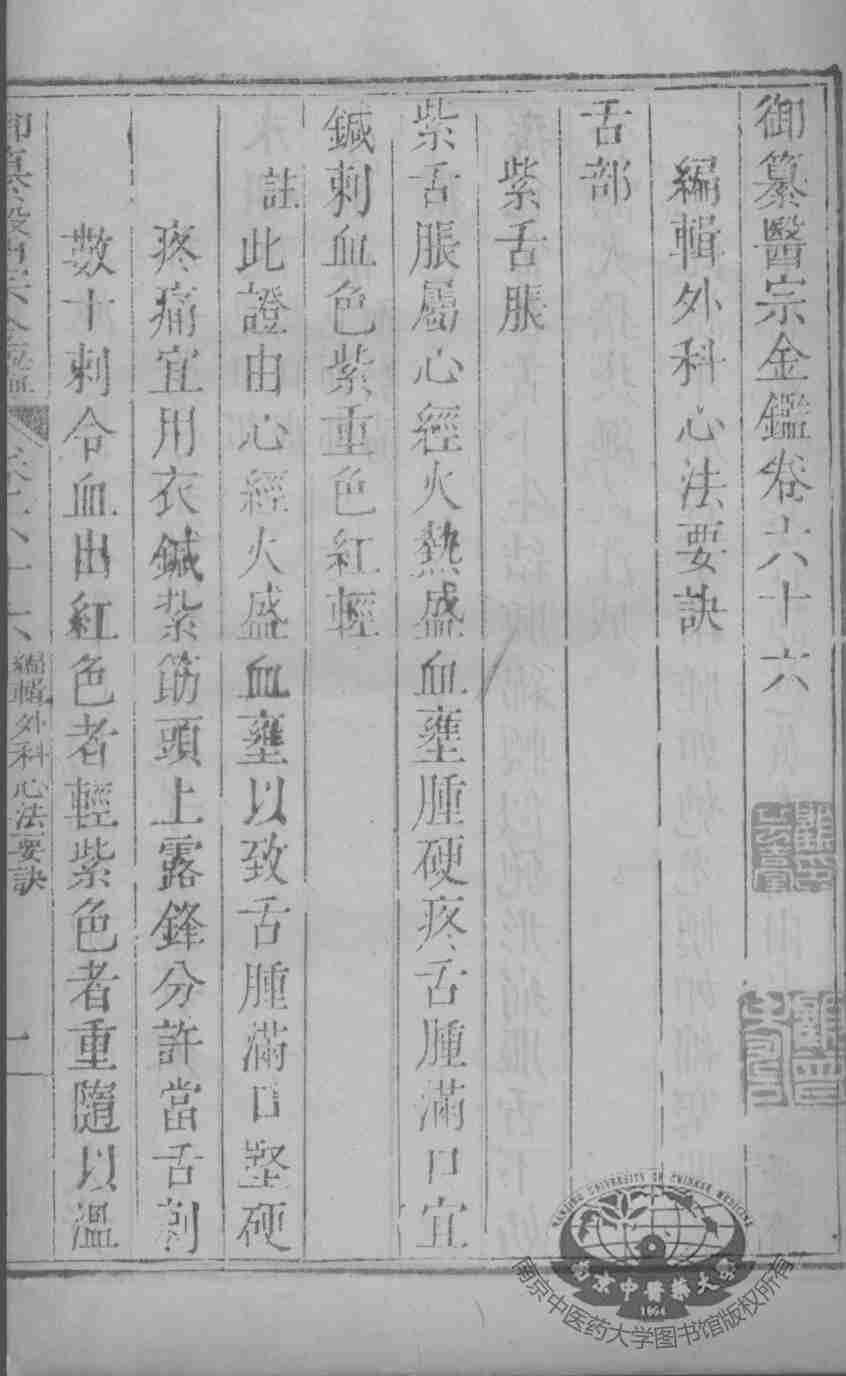 御纂醫宗金鑑卷六十六
編輯外科心法要訣
舌部
紫舌脹
紫舌脹屬心經火熱盛血壅腫硬疼舌腫滿口宜
鍼刺血色紫重色紅輕
註此證由心經火盛血壅以致舌腫滿口堅硬
疼痛宜用衣鍼紮筯頭上露鋒分許當舌刺
數十刺令血出紅色者輕紫色者重隨以溫
編輯外科心法要訣
一
NANJING UNIVERSITY OF CHINESE MEDICINE
南京中醫藥大學
1954
南京中医药大学图书馆版权所有